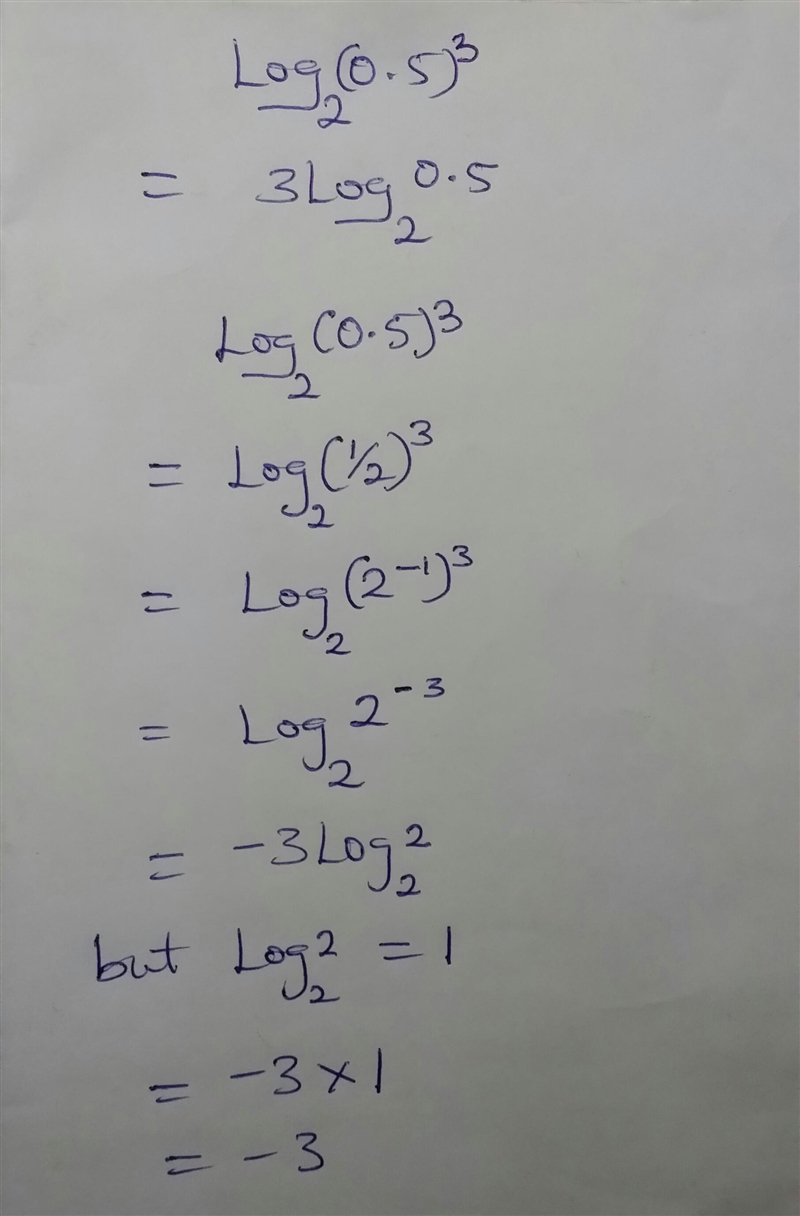 Log₂(0.5)³
= 3Log₂0.5
Log₂(0.5)³
= Log₂(1/2)³
= Log₂(2⁻¹)³
= Log₂2⁻³
= -3Log₂2
but Log₂2 = 1
= -3×1
= -3